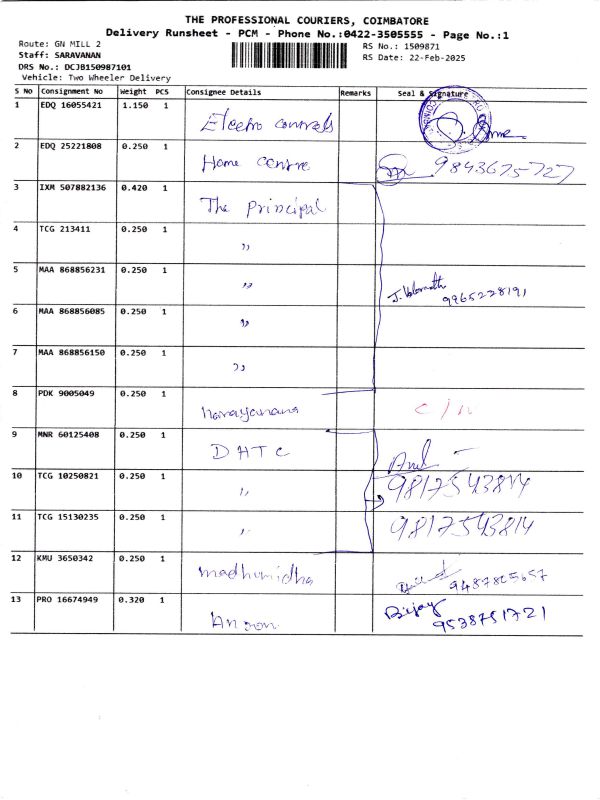 THE PROFESSIONAL COURIERS, COIMBATORE
Delivery Runsheet - PCM - Phone No.:0422-3505555 - Page No.:1
Route: GN MILL 2
RS No.: 1509871
Staff: SARAVANAN
RS Date: 22-Feb-2025
DRS No.: DCJB150987101
Vehicle: Two Wheeler Delivery
S No Consignment No Weight PCS Consignee Details Remarks Seal & Signature
1 EDQ 16055421 1.150 1 Electro controls
2 EDQ 25221808 0.250 1 Home centre 9843675727
3 IXM 507882136 0.420 1 The principal
4 TCG 213411 0.250 1 ,,
5 MAA 868856231 0.250 1 ,, 9965228191
6 MAA 868856085 0.250 1 ,,
7 MAA 868856150 0.250 1 ,,
8 PDK 9005049 0.250 1 narayanana c/n
9 MNR 60125408 0.250 1 DHTC
10 TCG 10250821 0.250 1 ,, 9817543814
11 TCG 15130235 0.250 1 ,, 9817543814
12 KMU 3650342 0.250 1 madhumidha
13 PRO 16674949 0.320 1 Bijay
9538751721